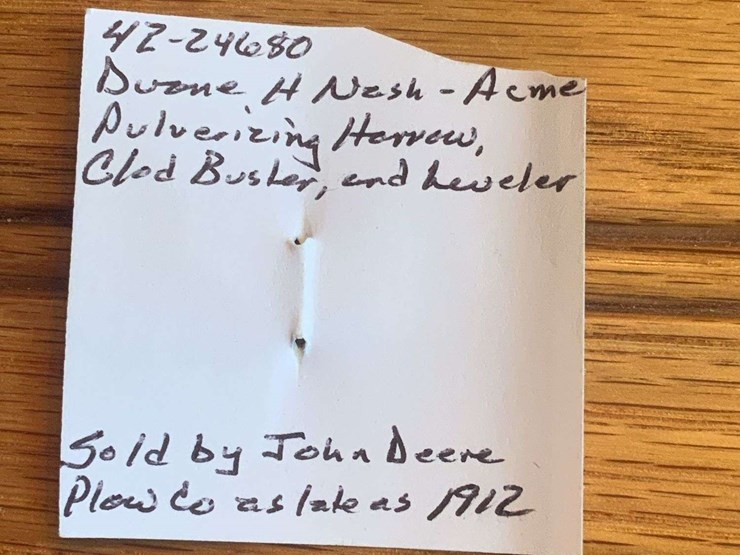 42-24680
Duane H Nash - Acme
Pulverizing Harrow,
Clod Buster, and Leveler
Sold by John Deere
Plow Co as late as 1912